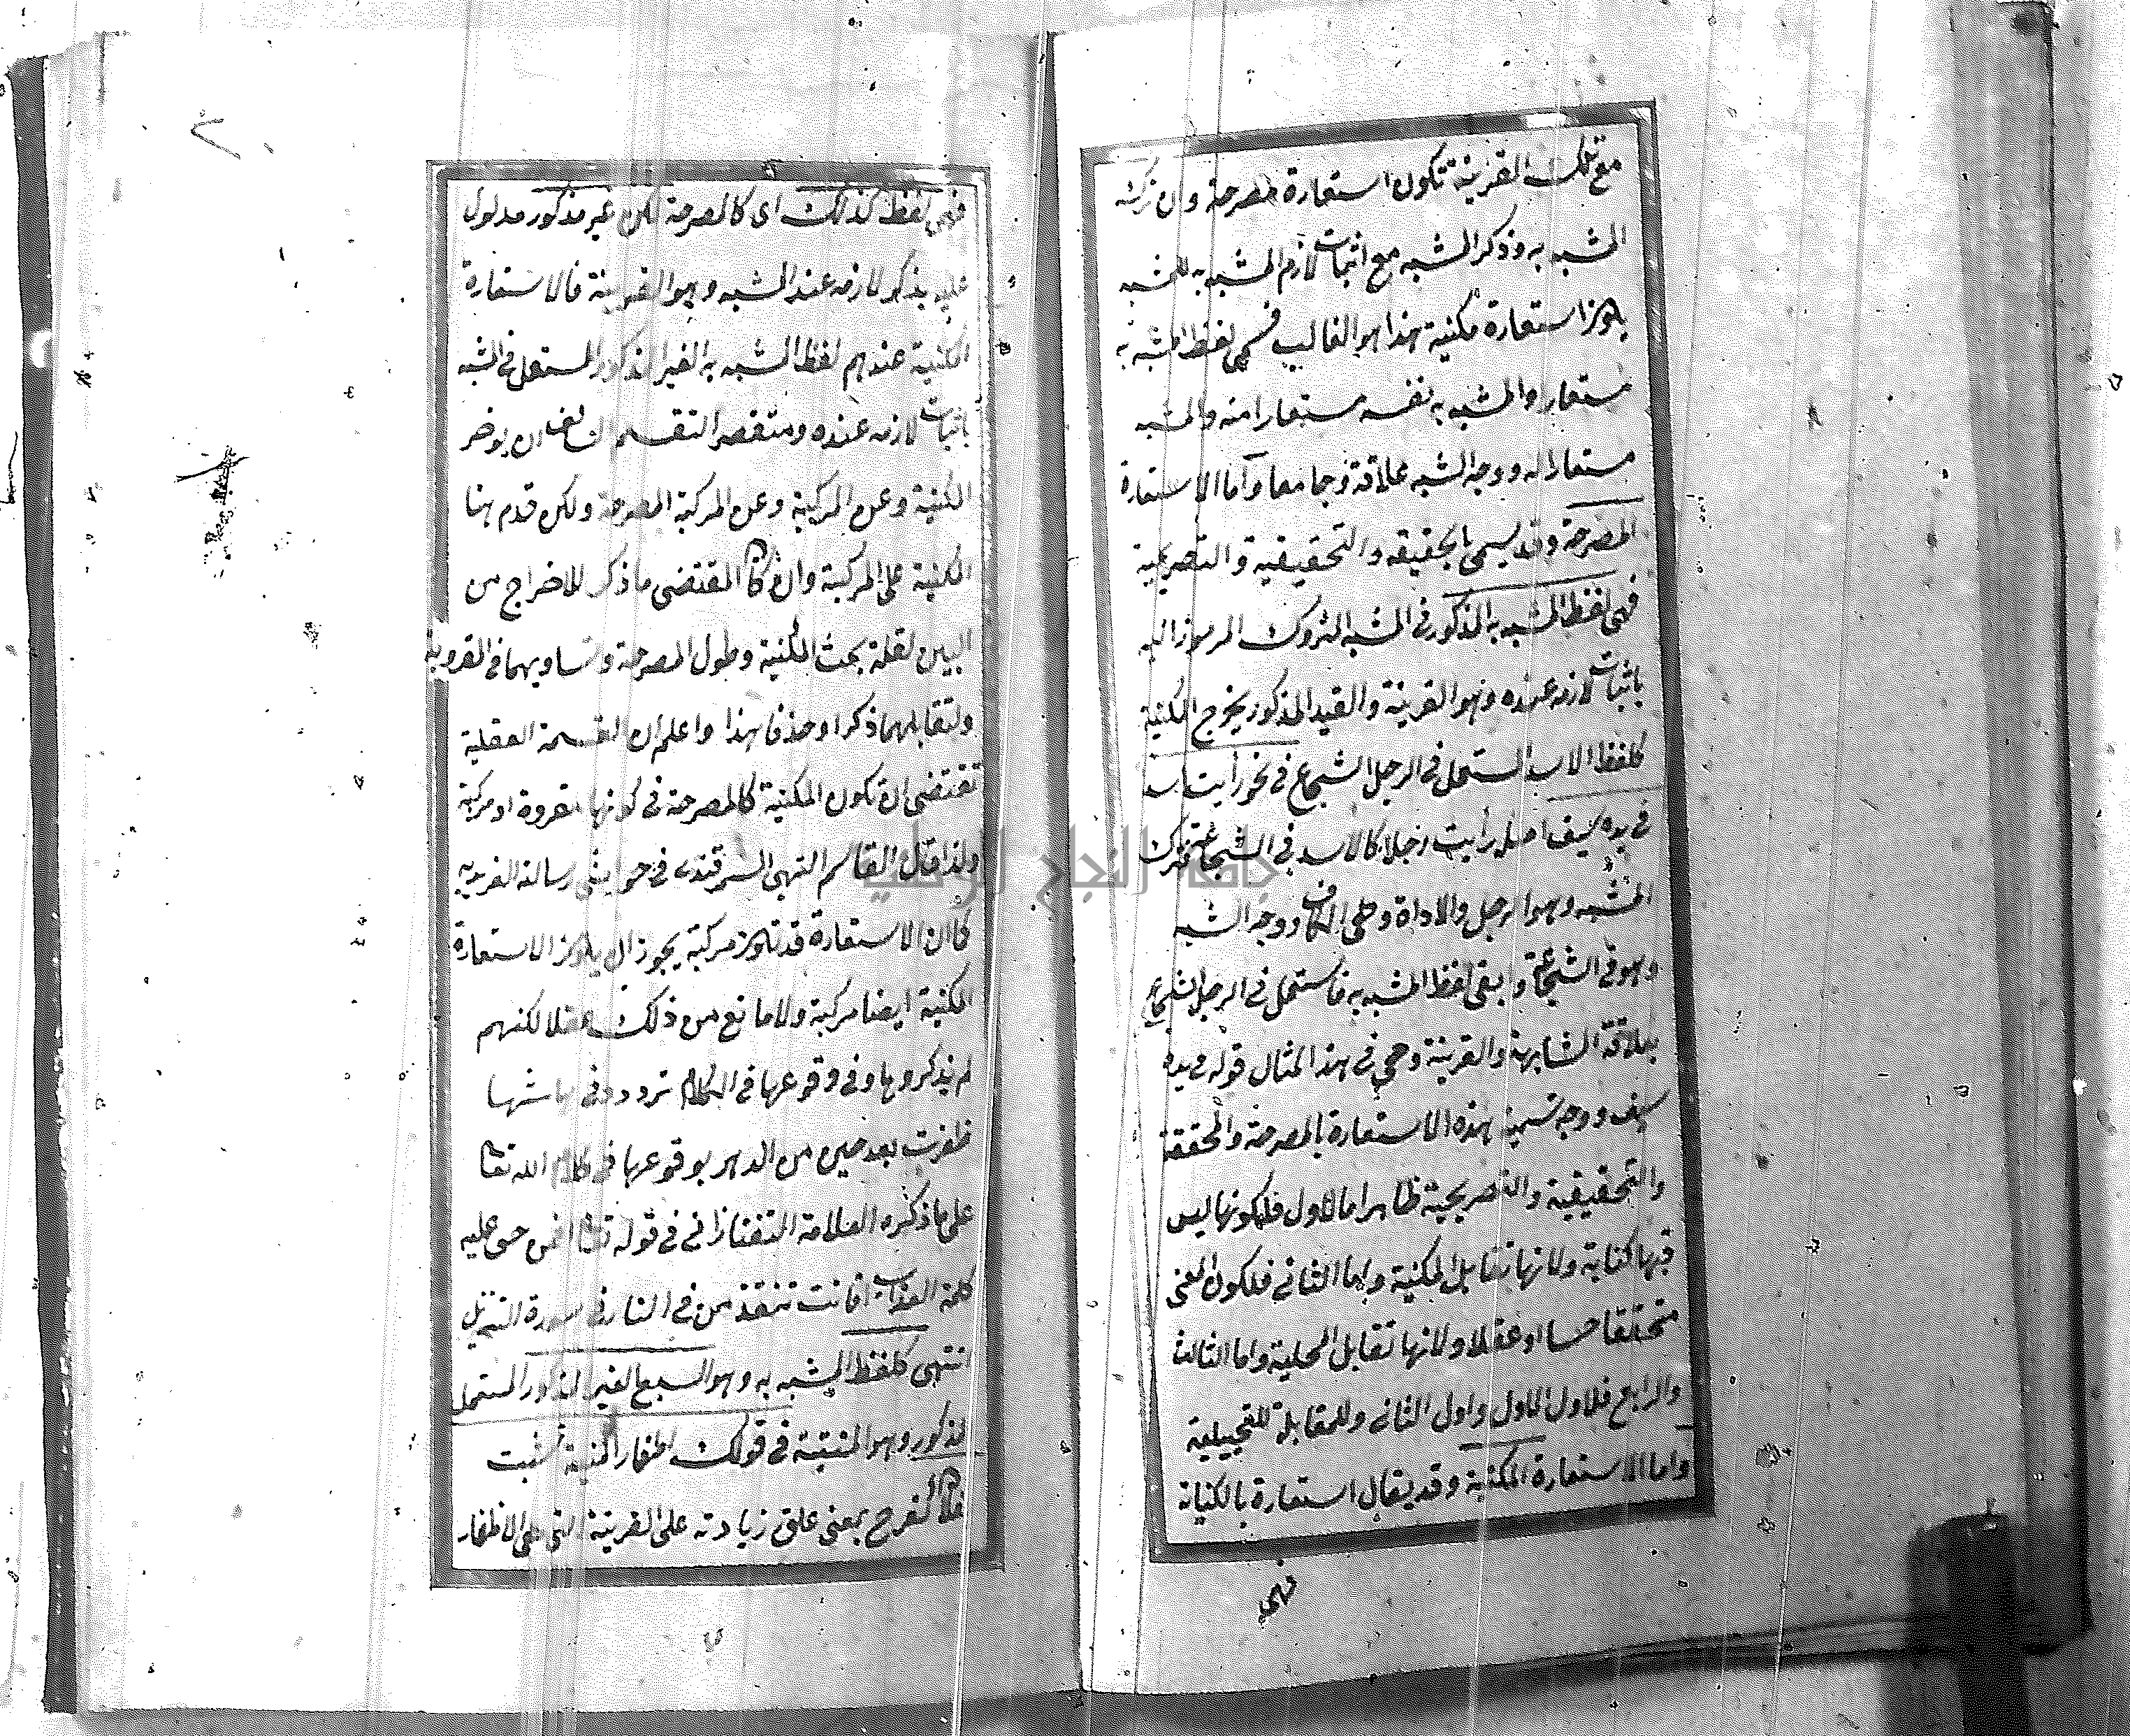 مع تلك القرينة تكون استعارة مصرحة وان ترك
المشبه به وذكر المشبه مع اثبات لازم المشبه به للمشبه
يكون استعارة مكنية هذا هو الغالب فسمى لفظ المشبه به
مستعارا والمشبه به نفسه مستعارا منه والمشبه
مستعارا له ووجه الشبه علاقة وجامعا واما الاستعارة
المصرحة وقد يسمى بالحقيقه والتحقيقية والتصريحية
فهى لفظ المشبه به المذكور فى المشبه المتروك المرموز اليه
باثبات لازمه عنده وهو القرينة والقيد المذكور يخرج المكنية
كلفظ الاسد المستعمل فى الرجل الشجاع فى نحو رأيت اسدا
فى يده سيف اصله رأيت رجلا كالاسد فى الشجاعة فترك
المشبه وهو الرجل والاداة وهى الكاف ووجه الشبه
وهو فى الشجاعة وابقى لفظ المشبه به فاستعمل فى الرجل الشجاع
بعلاقة المشابهة والقرينة وهى فى هذا المثال قوله فى يده
سيف ووجه تسمية هذه الاستعارة بالمصرحة والمحققة
والتحقيقية والتصريحية ظاهر اما الاول فلكونها ليس
فيها كناية ولانها تقابل المكنية واما الثانى فلكون المعنى
متحققا حسا او عقلا ولانها تقابل المخيلية واما الثالث
والرابع فلاول الاول واول الثانى وللمقابلة للتخييلية
واما الاستعارة المكنية وقد يقال استعارة بالكناية
فهى
فهى لفظ كذلك اى كالمصرحة لكن غير مذكور مدلول
عليه بذكر لازمه عند المشبه وهو القرينة فالاستعارة
المكنية عندهم لفظ المشبه به الغير المذكور المستعمل فى المشبه
باثبات لازمه عنده ومقتضى التقسيم السالف ان يؤخر
المكنية وعن المركبة وعن المركبة المصرحة ولكن قدم هنا
المكنية على المركبة وان كان المقتضى ما ذكر للاخراج من
البين لقلة بحث المكنية وطول المصرحة وتساويهما فى القرينة
ولتقابلهما ذكرا وحذفا هذا واعلم ان القسمة العقلية
تقتضى ان تكون المكنية كالمصرحة فى كونها مفردة او مركبة
ولذا قال القاسم الليثى السمرقندى فى حواشى رسالة الفريدية
كما ان الاستعارة قد تكون مركبة يجوز ان يكون الاستعارة
المكنية ايضا مركبة ولا مانع من ذلك عقلا لكنهم
لم يذكروها وفى وقوعها فى الكلام تردد وفى هامشها
ظفرت بعد حين من الدهر بوقوعها فى كلام الله تعا
على ما ذكره العلامة التفتازانى فى قوله تعا افمن حق عليه
كلمة العذاب افانت تنقذ من فى النار فى سورة التنزيل
انتهى كلفظ المشبه به وهو السبع الغير المذكور المستعمل
لمذكور وهو المنية فى قولك اظفار المنية نشبت
بفلان لفرح بمعنى علق زيادته على القرينة التى هى الاظفار
جامعة النجاح الوطنية